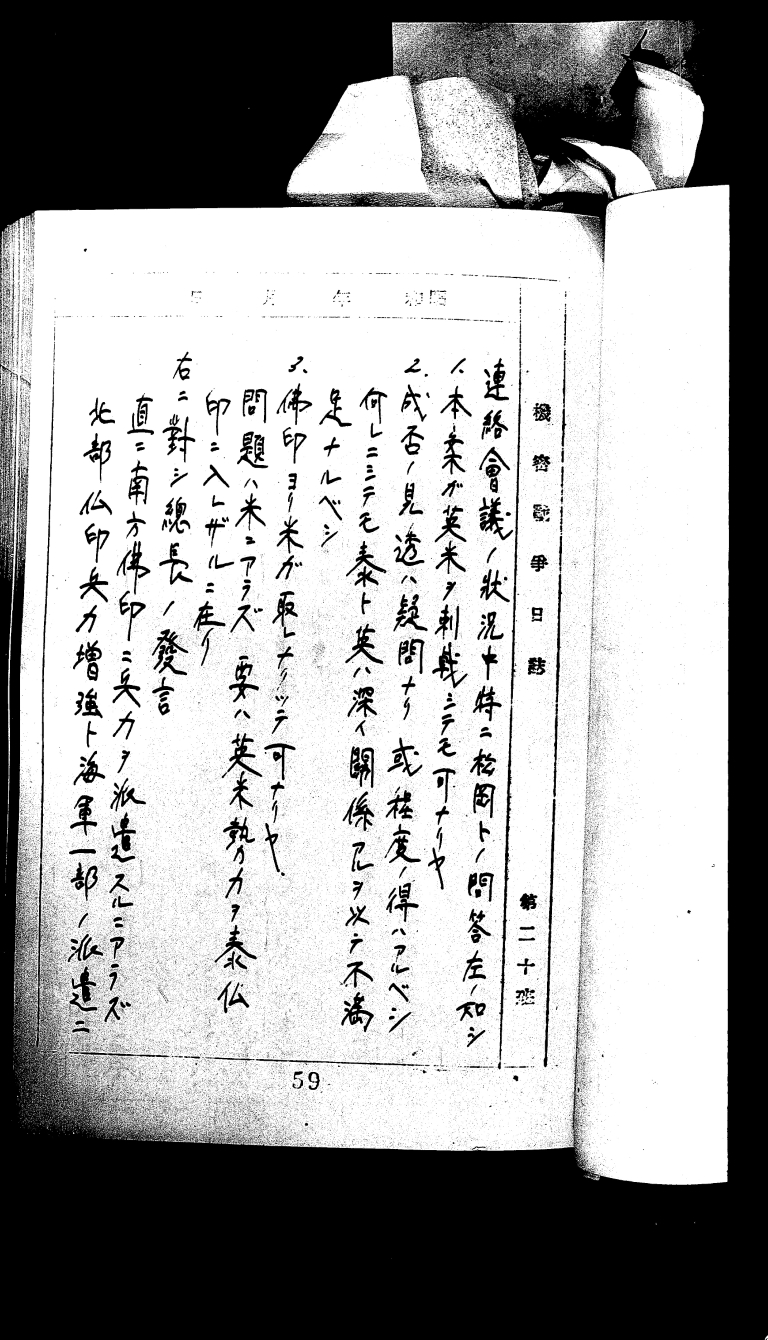 機密戰爭日誌
第二十班
昭和 年 月 日
連絡會議ノ狀況中特ニ松岡トノ問答左ノ如シ
1、本案ガ英米ヲ刺戟シテモ可ナリヤ
2.成否ノ見透ハ疑問ナリ 或程度ノ得ハアルベシ
何レニシテモ泰ト英ハ深イ關係アルヲ以テ不滿
足ナルベシ
3、佛印ヨリ米ガ取レナクッテ可ナリヤ.
問題ハ米ニアラズ 要ハ英米勢力ヲ泰仏
印ニ入レザルニ在リ
右ニ對シ總長ノ發言
直ニ南方佛印ニ兵力ヲ派遣スルニアラズ
北部仏印兵力增強ト海軍一部ノ派遣ニ
59